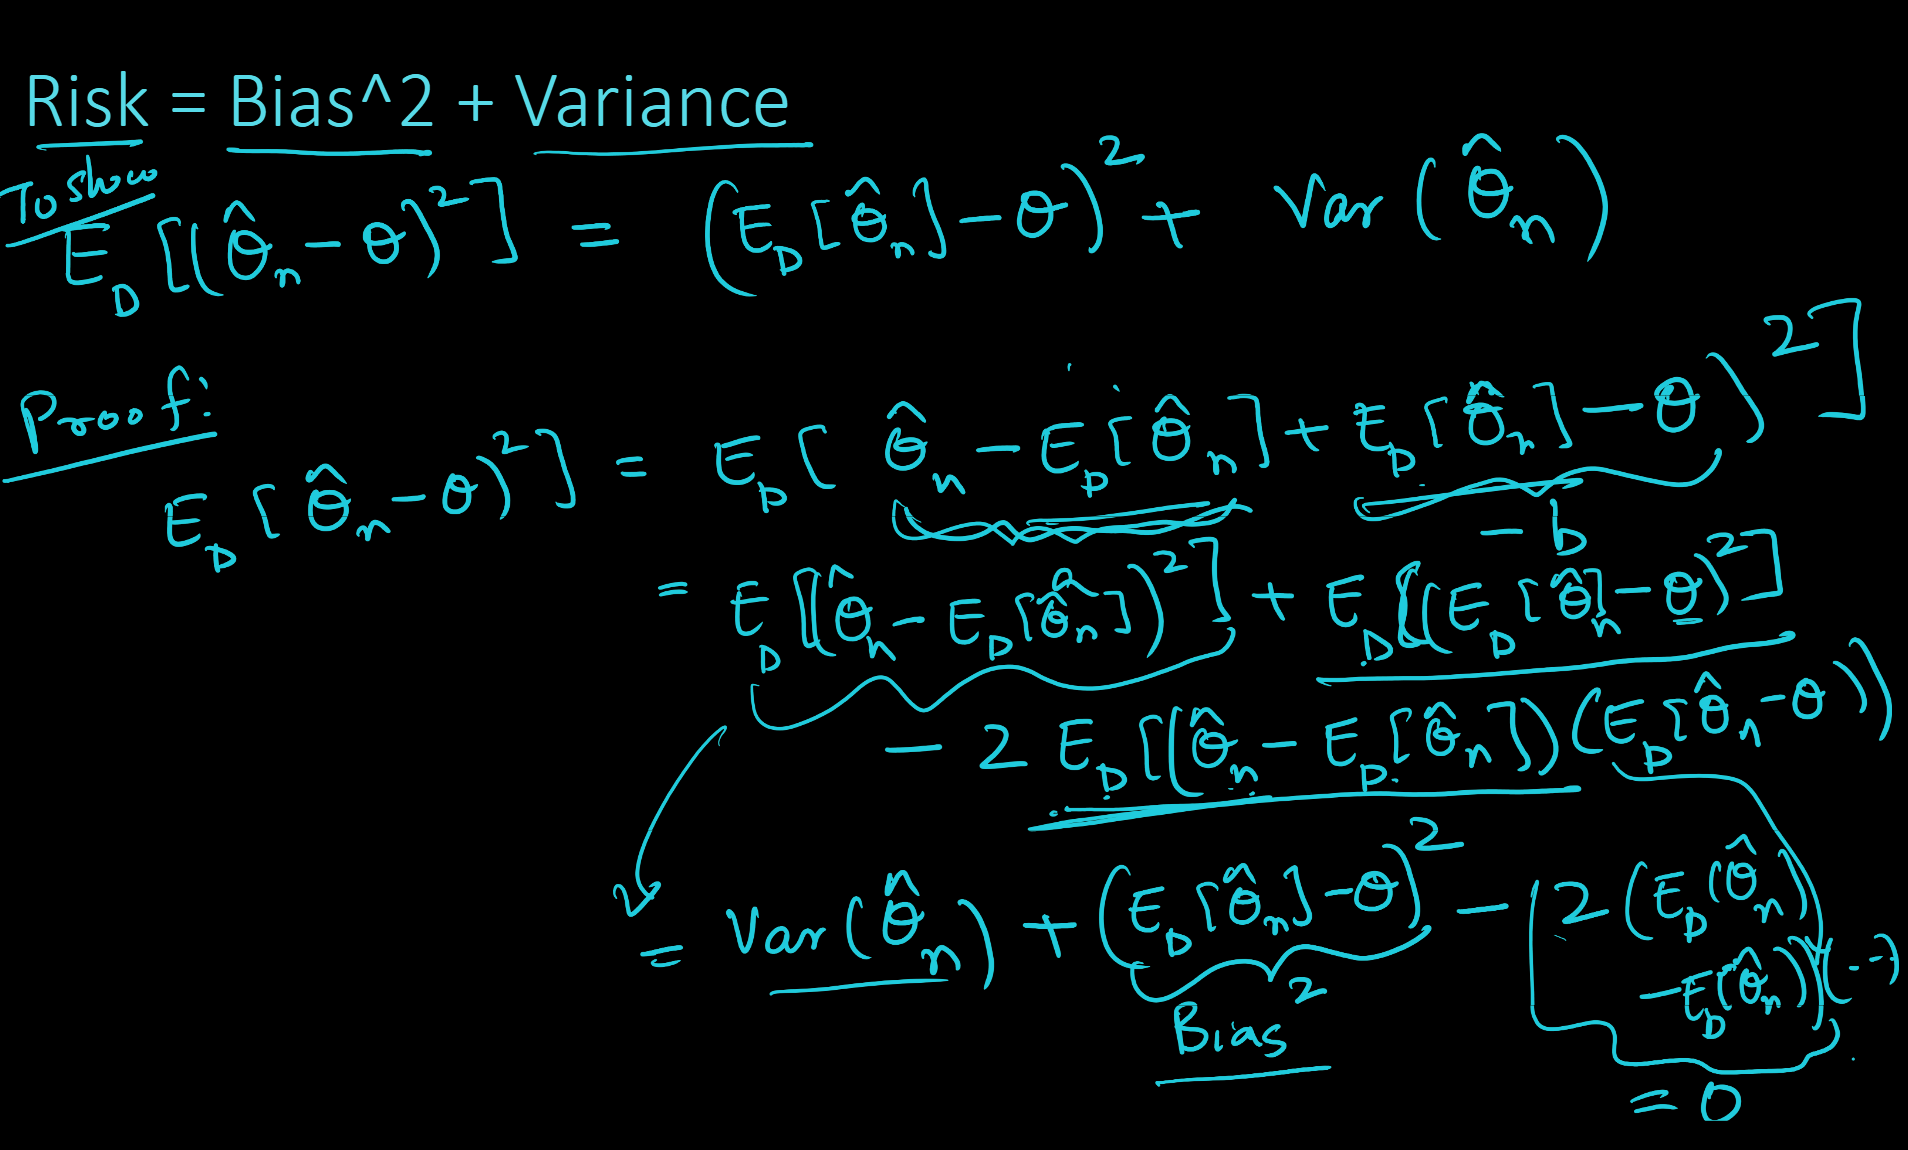 Risk = Bias^2 + Variance
To show
E_D [(θ̂_n − θ)^2] = (E_D [θ̂_n] − θ)^2 + Var (θ̂_n)
Proof:
E_D [θ̂_n − θ)^2] = E_D [ θ̂_n − E_D [θ̂_n] + E_D [θ̂_n] − θ )^2]
− b
= E_D [(θ̂_n − E_D [θ̂_n])^2] + E_D [(E_D [θ̂_n] − θ)^2]
− 2 E_D [(θ̂_n − E_D [θ̂_n]) (E_D [θ̂_n − θ))
= Var (θ̂_n) + (E_D [θ̂_n] − θ)^2 − 2 (E_D (θ̂_n)
− E_D (θ̂_n)) (...)
Bias^2
= 0